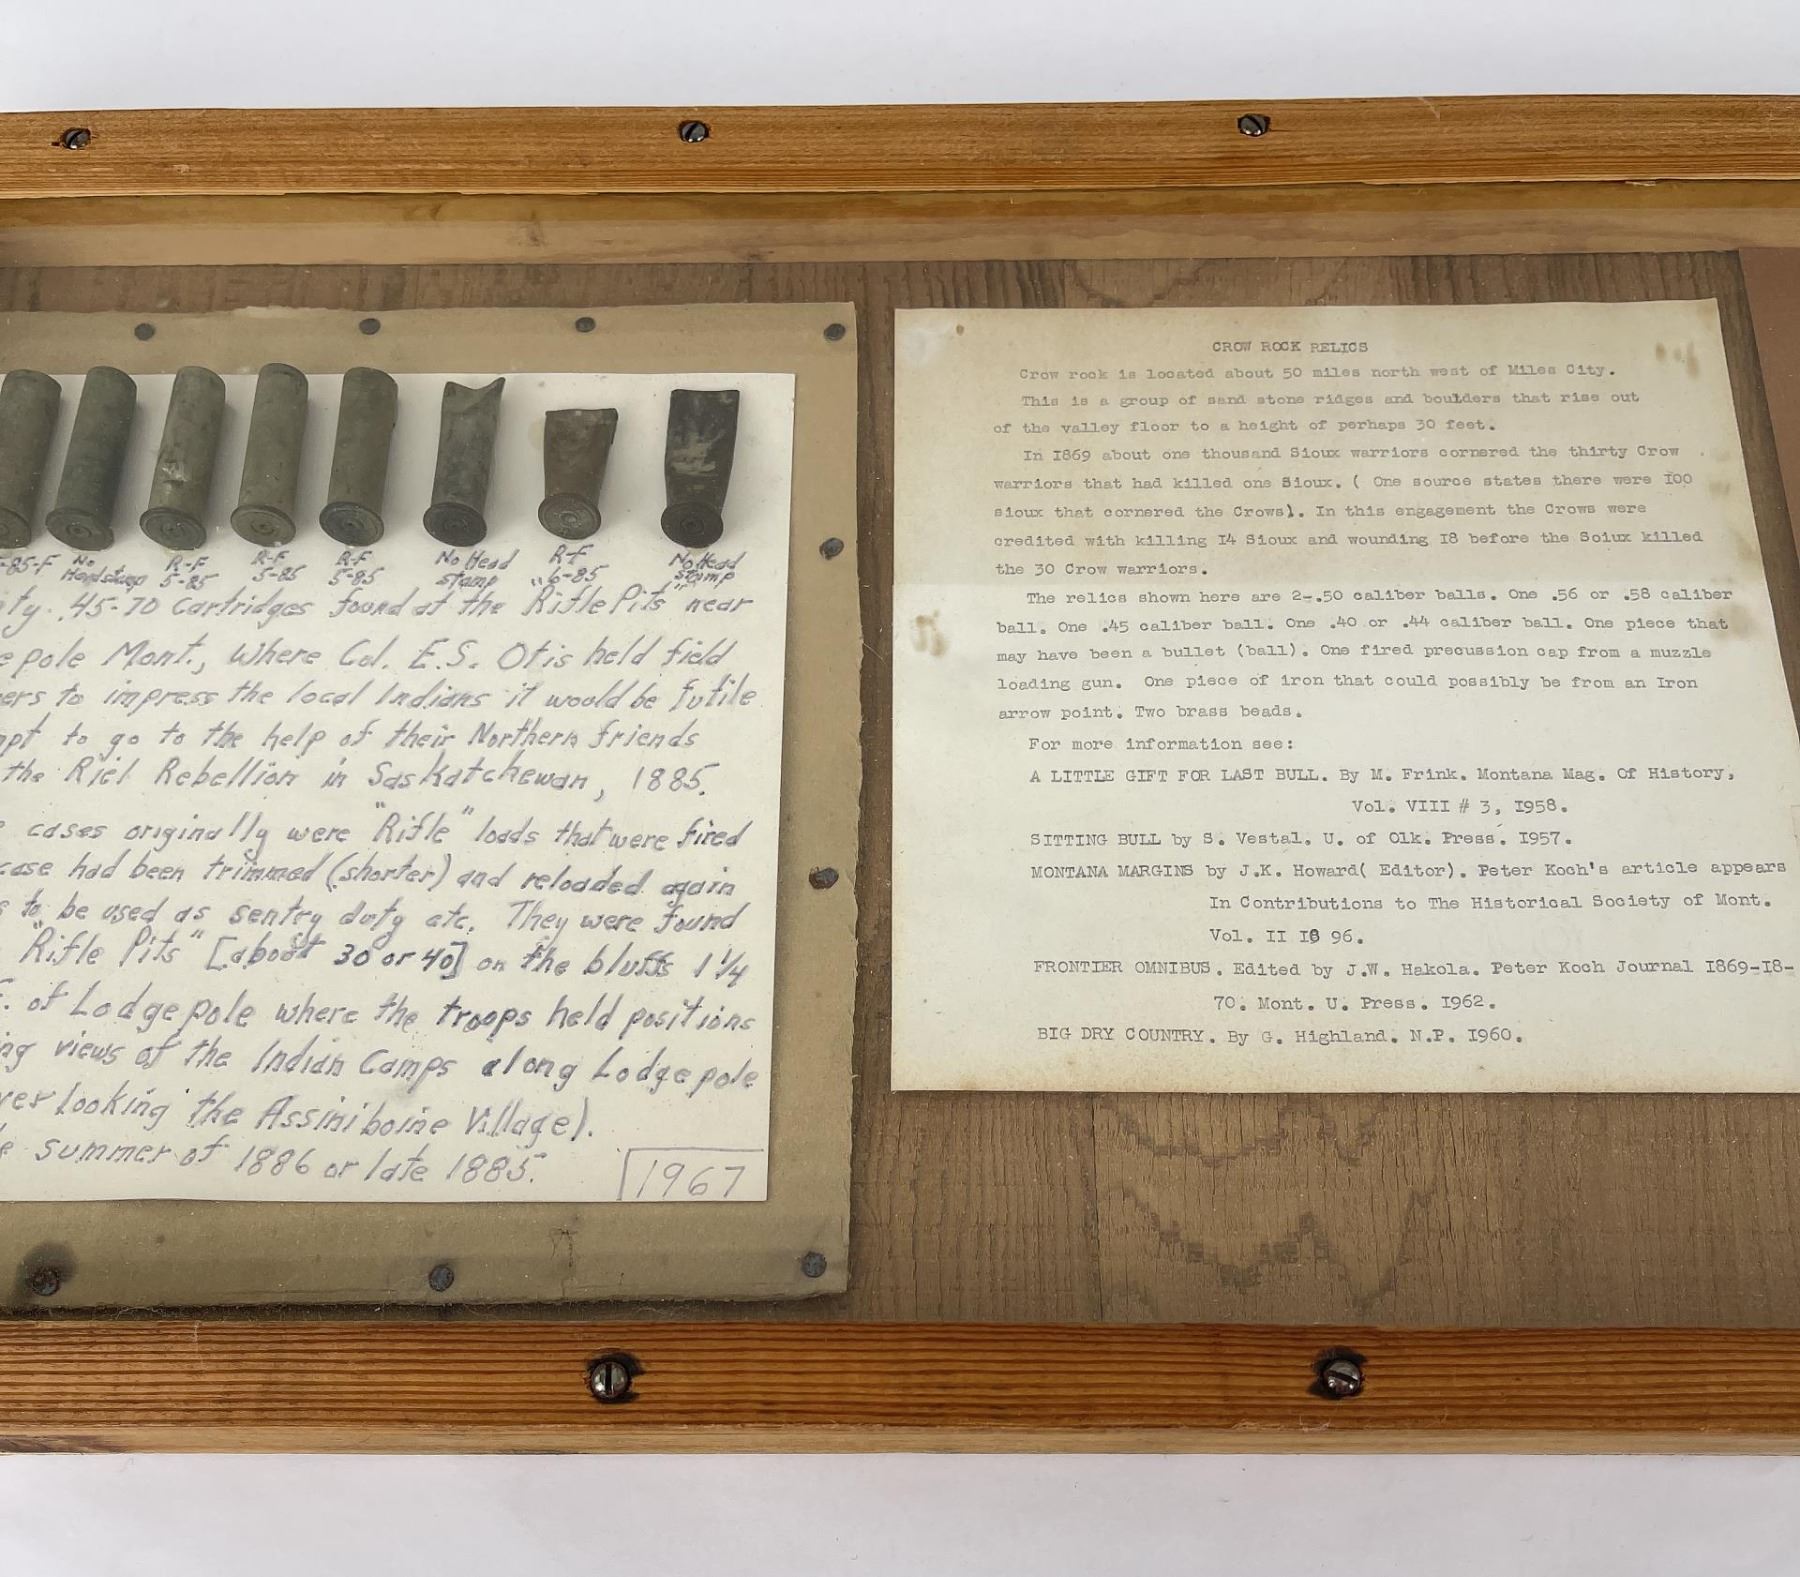 -85-F No Headstamp R-F 5-85 R-F 5-85 R-F 5-85 No Head stamp R-F 6-85 No Head stamp
ty .45-70 Cartridges found at the "Rifle Pits" near
epole Mont., Where Col. E.S. Otis held field
ers to impress the local Indians it would be futile
mpt to go to the help of their Northern friends
the Riel Rebellion in Saskatchewan, 1885.
cases originally were "Rifle" loads that were fired
case had been trimmed (shorter) and reloaded again
s to be used as sentry duty etc. They were found
"Rifle Pits" [about 30 or 40] on the bluffs 1 1/4
. of Lodgepole where the troops held positions
ing views of the Indian Camps along Lodgepole
ver looking the Assiniboine Village).
e summer of 1886 or late 1885.
1967
CROW ROCK RELICS
Crow rock is located about 50 miles north west of Miles City.
This is a group of sand stone ridges and boulders that rise out
of the valley floor to a height of perhaps 30 feet.
In I869 about one thousand Sioux warriors cornered the thirty Crow
warriors that had killed one Sioux. ( One source states there were I00
sioux that cornered the Crows). In this engagement the Crows were
credited with killing I4 Sioux and wounding I8 before the Soiux killed
the 30 Crow warriors.
The relics shown here are 2-.50 caliber balls. One .56 or .58 caliber
ball. One .45 caliber ball. One .40 or .44 caliber ball. One piece that
may have been a bullet (ball). One fired precussion cap from a muzzle
loading gun. One piece of iron that could possibly be from an Iron
arrow point. Two brass beads.
For more information see:
A LITTLE GIFT FOR LAST BULL. By M. Frink. Montana Mag. Of History,
Vol. VIII # 3, I958.
SITTING BULL by S. Vestal. U. of Olk. Press. I957.
MONTANA MARGINS by J.K. Howard( Editor). Peter Koch's article appears
In Contributions to The Historical Society of Mont.
Vol. II I8 96.
FRONTIER OMNIBUS. Edited by J.W. Hakola. Peter Koch Journal I869-I8-
70. Mont. U. Press. I962.
BIG DRY COUNTRY. By G. Highland. N.P. I960.